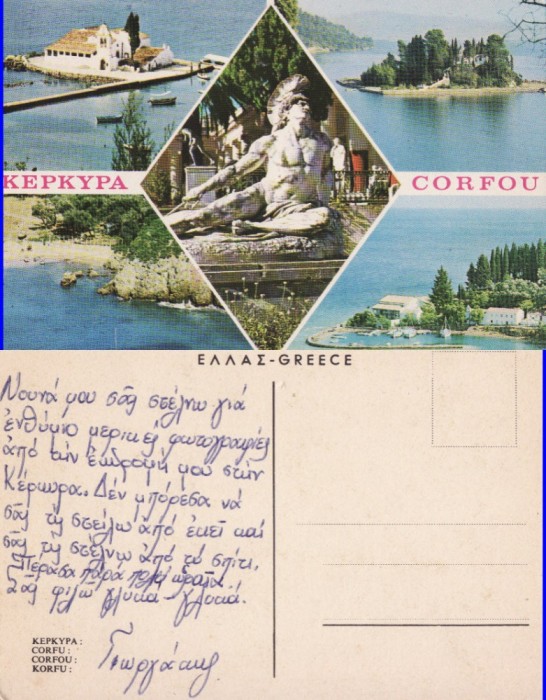 ΚΕΡΚΥΡΑ CORFOU
ΕΛΛΑΣ-GREECE
Νουνά μου σᾶς στέλνω γιά
ἐνθύμιο μερικές φωτογραφίες
ἀπό τήν ἐκδρομή μου στήν
Κέρκυρα. Δέν μπόρεσα νά
σᾶς τίς στείλω ἀπό ἐκεῖ καί
σᾶς τίς στέλνω ἀπό τό σπίτι.
Πέρασα πάρα πολύ ὡραῖα.
Σᾶς φιλῶ γλυκά-γλυκά.
Γιωργάκης
ΚΕΡΚΥΡΑ:
CORFU:
CORFOU:
KORFU: